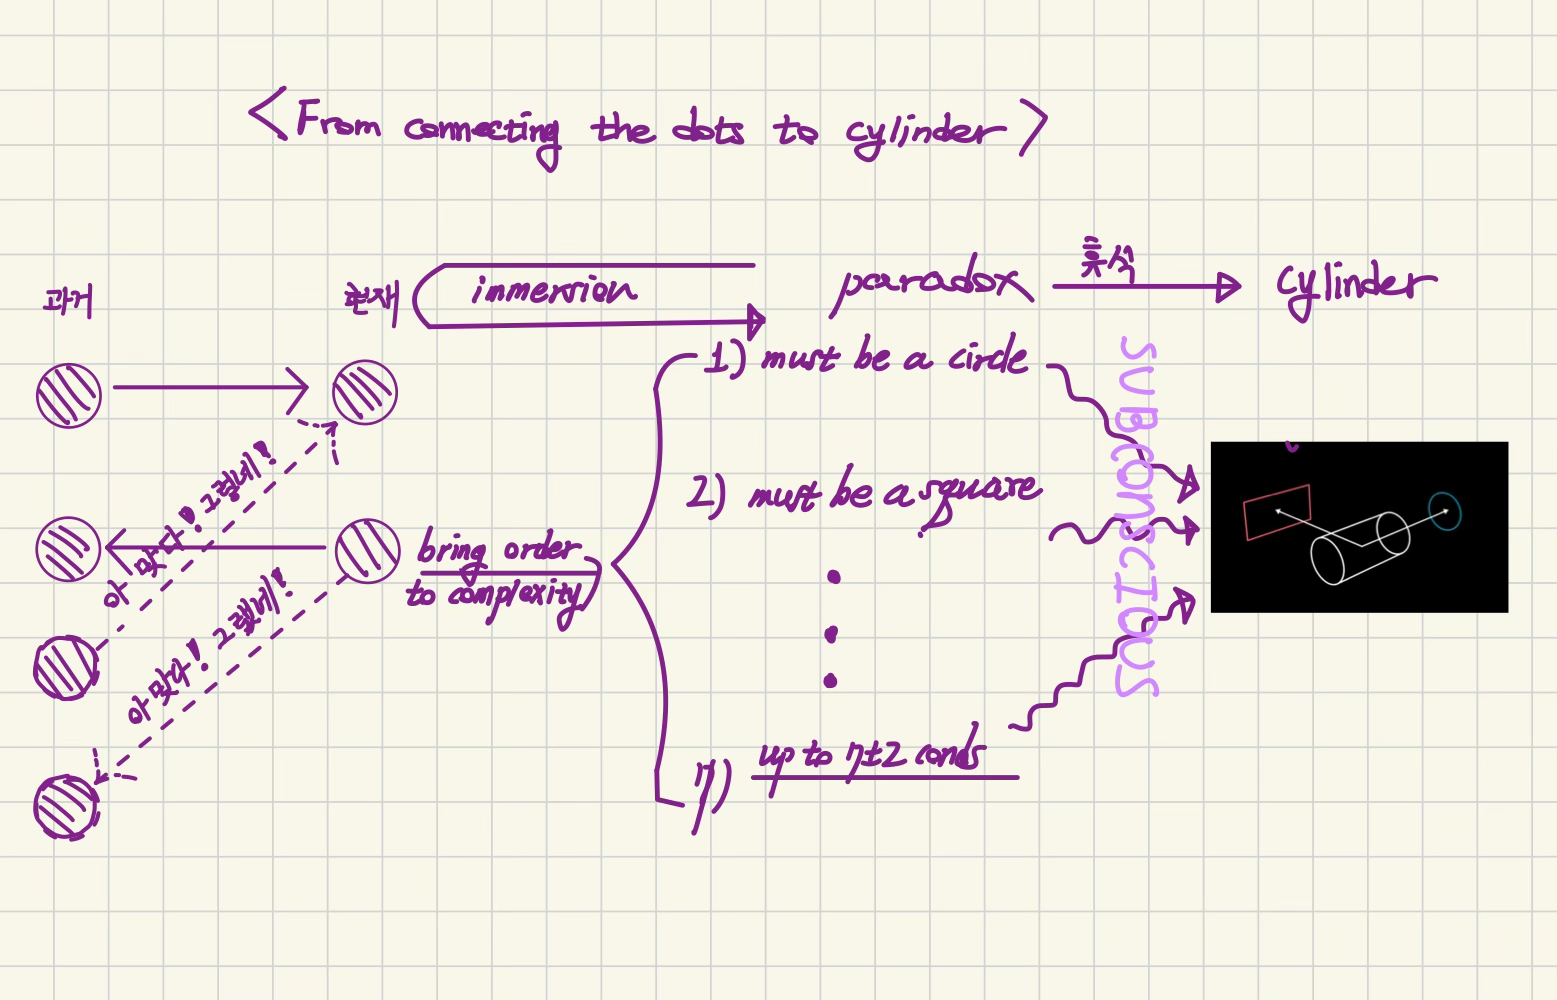 <From connecting the dots to cylinder>
과거
현재
immersion
paradox
휴식
cylinder
1) must be a circle
2) must be a square
7) up to 7±2 conds
bring order
to complexity
아 맞다! 그렇네!
아 맞다! 그렇네!
SUBCONSCIOUS